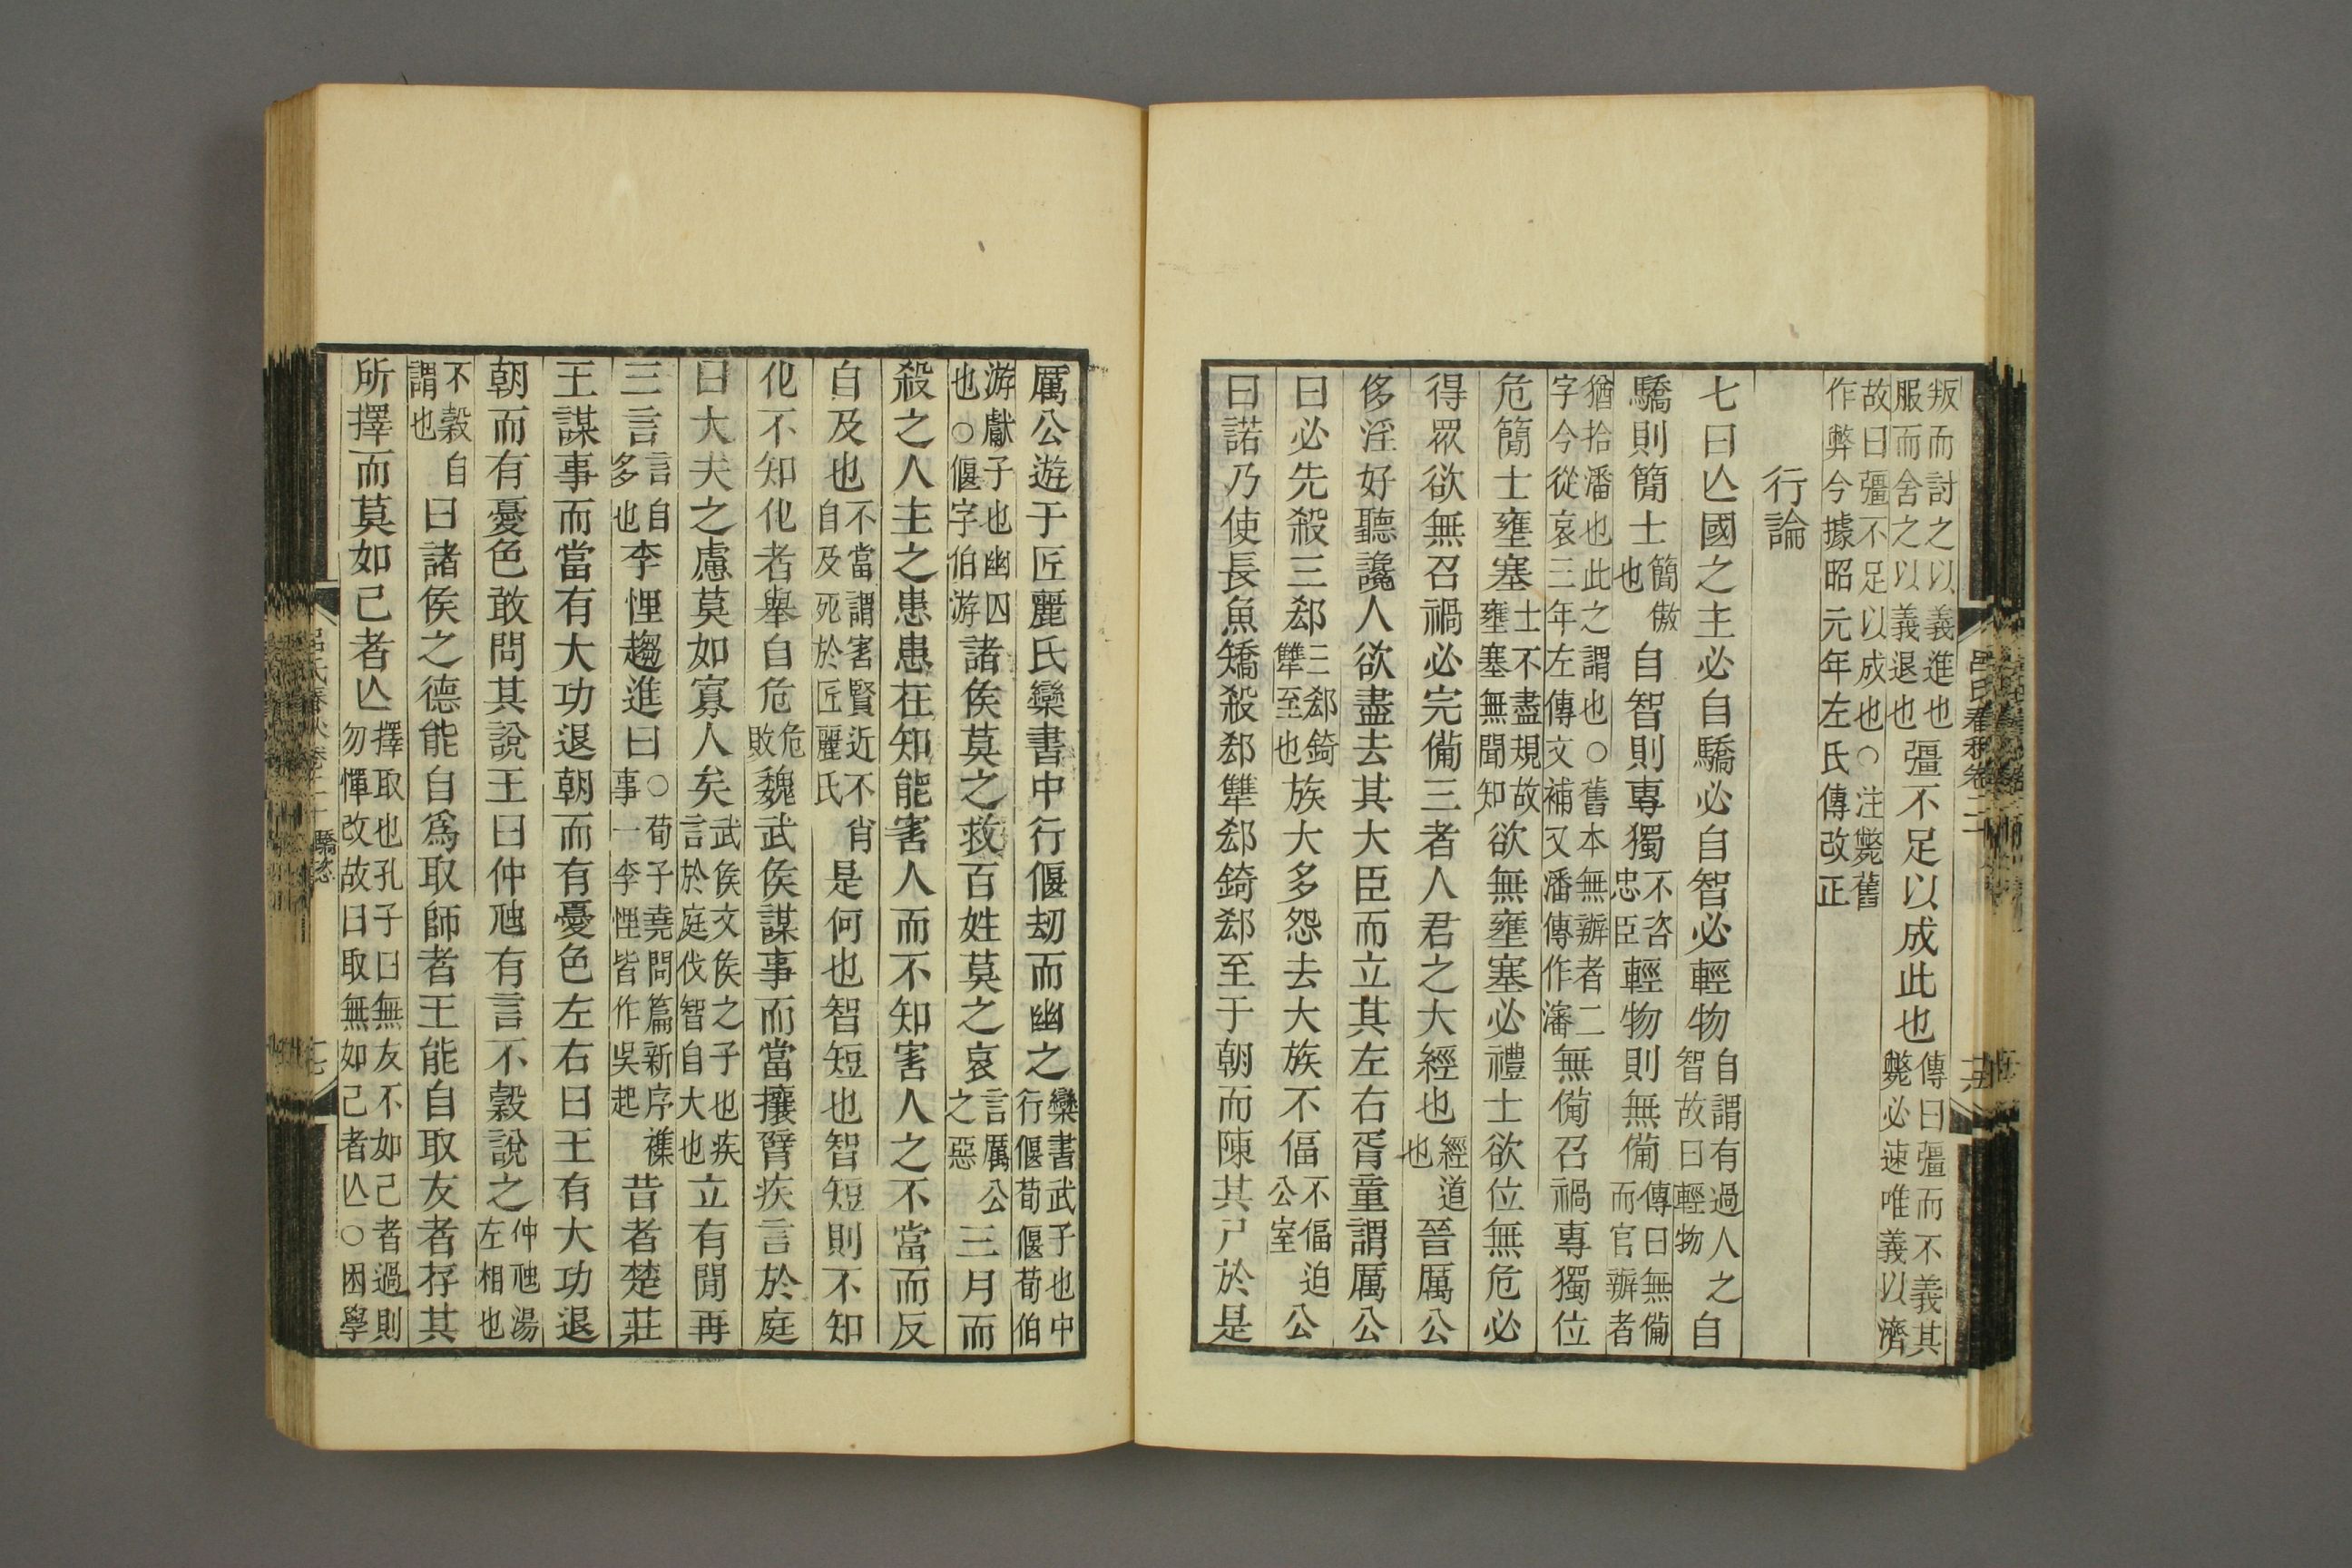 叛而討之以義進也服而舍之以義退也彊不足以成此也傳曰彊而不義其斃必速唯義以濟
故曰彊不足以成也○注斃舊作弊今據昭元年左氏傳改正
行論
七曰亾國之主必自驕必自智必輕物自謂有過人之智故曰輕物自
驕則簡士簡傲也自智則專獨不咨忠臣輕物則無備傳曰無備而官辦者
猶拾潘也此之謂也○舊本無辦者二字今從哀三年左傳文補又潘傳作瀋無備召禍專獨位
危簡士壅塞士不盡規故壅塞無聞知欲無壅塞必禮士欲位無危必
得眾欲無召禍必完備三者人君之大經也經道也晉厲公
侈淫好聽讒人欲盡去其大臣而立其左右胥童謂厲公
曰必先殺三郄三郄錡犨至也族大多怨去大族不偪不偪迫公室公
曰諾乃使長魚矯殺郄犨郄錡郄至于朝而陳其尸於是
厲公遊于匠麗氏欒書中行偃刧而幽之欒書武子也中行偃荀偃荀伯
游獻子也幽囚也○偃字伯游諸矦莫之救百姓莫之哀言厲公之惡三月而
殺之人主之患患在知能害人而不知害人之不當而反
自及也不當謂害賢近不肖自及死於匠麗氏是何也智短也智短則不知
化不知化者舉自危危敗魏武矦謀事而當攘臂疾言於庭
曰大夫之慮莫如寡人矣武矦文矦之子也疾言於庭伐智自大也立有閒再
三言言自多也李悝趨進曰○荀子堯問篇新序襍事一李悝皆作吳起昔者楚莊
王謀事而當有大功退朝而有憂色左右曰王有大功退
朝而有憂色敢問其說王曰仲虺有言不穀說之仲虺湯左相也
不穀自謂也曰諸矦之德能自爲取師者王能自取友者存其
所擇而莫如己者亾擇取也孔子曰無友不如己者過則勿憚改故曰取無如己者亾○困學
呂氏春秋卷二十 驕恣